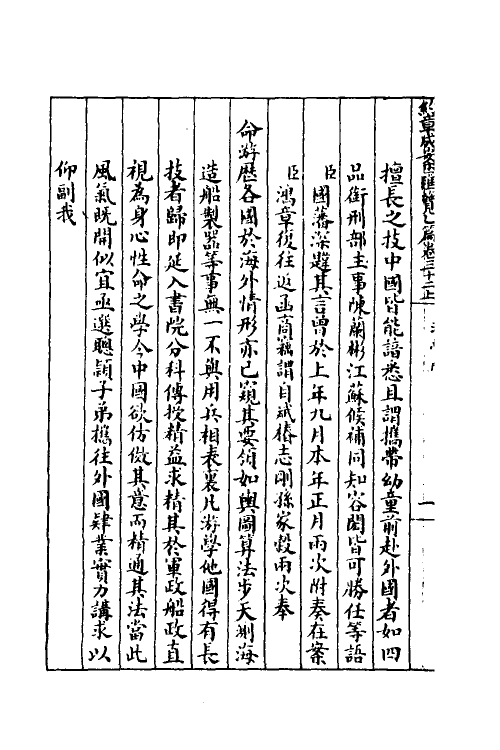 約章成案匯覽乙篇卷三十二上
擅長之技中國皆能諳悉且謂攜帶幼童前赴外國者如四
品銜刑部主事陳蘭彬江蘇候補同知容閎皆可勝任等語
臣國藩深韙其言曾於上年九月本年正月兩次附奏在案
臣鴻章復往返函商竊謂自斌椿志剛孫家穀兩次奉
命游歷各國於海外情形亦已窺其要領如輿圖算法步天測海
造船製器等事無一不與用兵相表裏凡游學他國得有長
技者歸即延入書院分科傳授精益求精其於軍政船政直
視為身心性命之學今中國欲仿傚其意而精通其法當此
風氣既開似宜亟選聰穎子弟攜往外國肄業實力講求以
仰副我